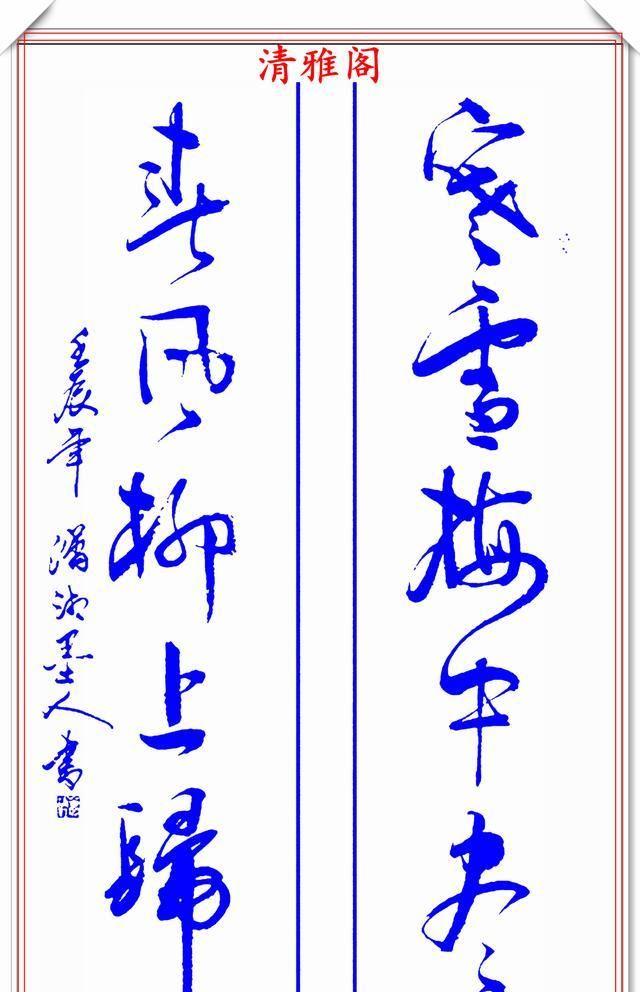 清雅阁
寒雪梅中尽
春风柳上歸
壬辰年 潇湘墨人書